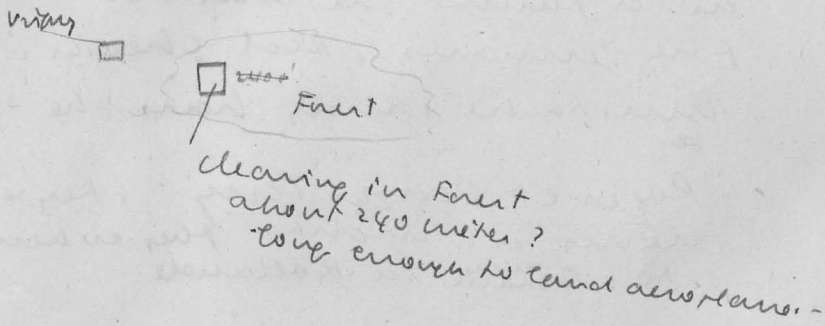 Forest
clearing in Forest
about 240 meter?
long enough to land aeroplane.-